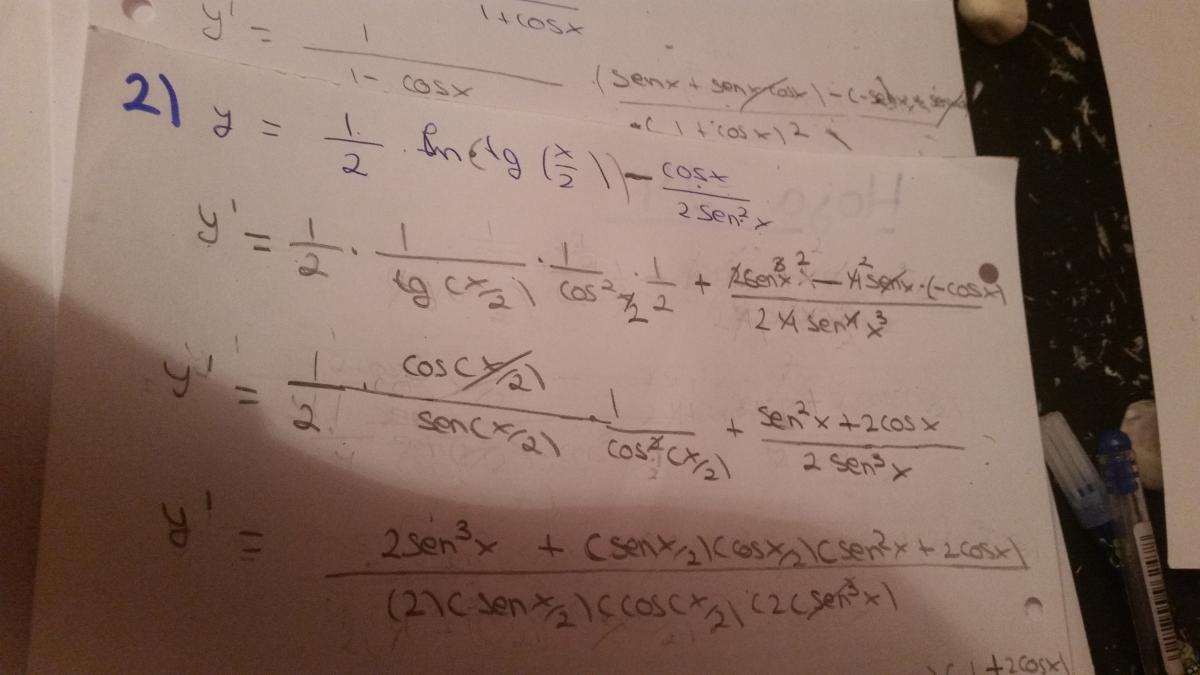 1+cosx
y' = 1 / 1 - cosx (senx + senxcosx) - (-senx + senx / (1+cosx)2
2) y = 1/2 . ln(tg (x/2)) - cosx / 2sen²x
y' = 1/2 . 1 / tg(x/2) . 1 / cos² x/2 . 1/2 + 2sen³x² - 4² senx . (-cosx) / 2 4 senx x³
y' = 1/2 . cos(x/2) / sen(x/2) . 1 / cos²(x/2) + sen²x + 2cosx / 2sen³x
y' = 2sen³x + (senx/2)(cosx/2)(sen²x + 2cosx) / (2)(senx/2)(cos(x/2)(2(sen³x)
1+2cosx)